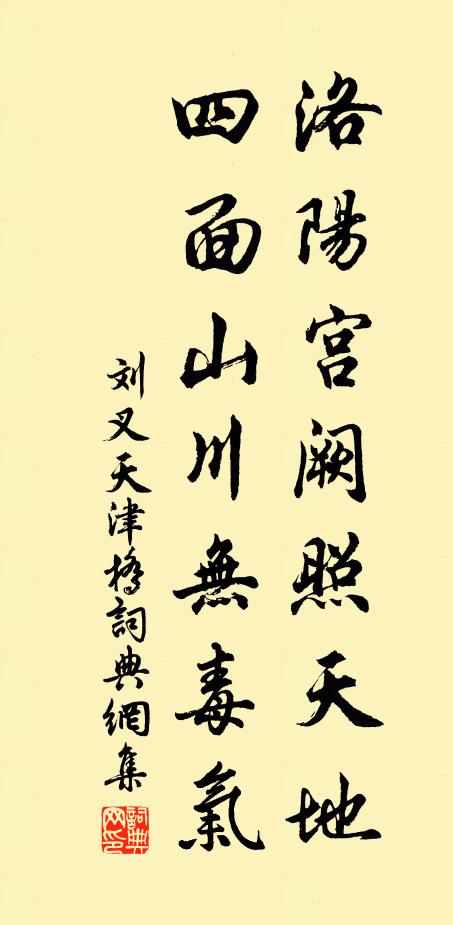 洛陽宫阙照天地
四面山川無毒氣
刘叉天津橋詞典網集
詞典網印